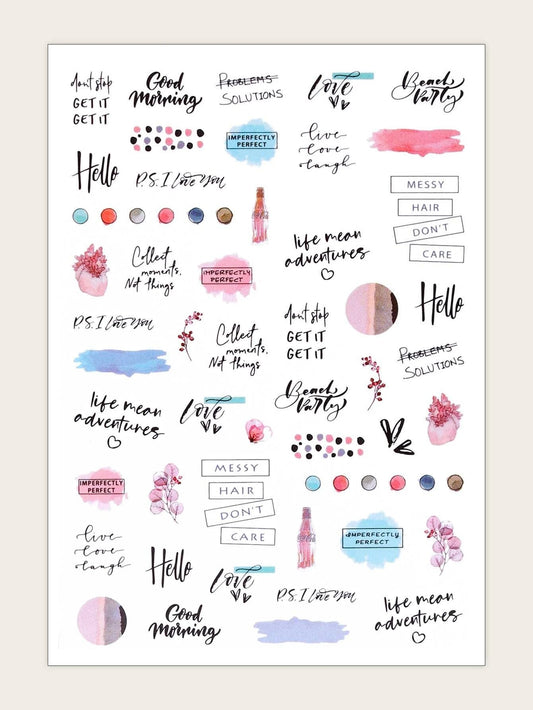 dont stop
GET IT
GET IT
Good
Morning
PROBLEMS
SOLUTIONS
love
Beach
Party
IMPERFECTLY
PERFECT
live
love
laugh
Hello
P.S. I Love You
MESSY
HAIR
DON'T
CARE
life mean
adventures
Collect
moments,
Not things
IMPERFECTLY
PERFECT
dont stop
GET IT
GET IT
Hello
P.S. I Love You
Collect
moments,
Not things
PROBLEMS
SOLUTIONS
life mean
adventures
love
Beach
Party
MESSY
HAIR
DON'T
CARE
IMPERFECTLY
PERFECT
live
love
laugh
Hello
IMPERFECTLY
PERFECT
love
P.S. I Love You
Good
Morning
life mean
adventures